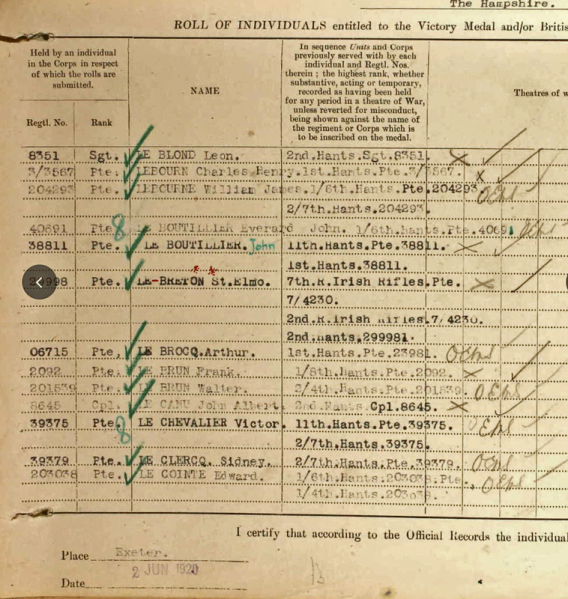 The Hampshire.
ROLL OF INDIVIDUALS entitled to the Victory Medal and/or Briti
Held by an individual
in the Corps in respect
of which the rolls are
submitted.
NAME
In sequence Units and Corps
previously served with by each
individual and Regtl. Nos.
therein ; the highest rank, whether
substantive, acting or temporary,
recorded as having been held
for any period in a theatre of War,
unless reverted for misconduct,
being shown against the name of
the regiment or Corps which is
to be inscribed on the medal.
Theatres of w
Regtl. No. Rank
8351 Sgt. LE BLOND Leon. 2nd.Hants.Sgt.8351.
3/3567 Pte. LEFOURN Charles Henry. 1st.Hants.Pte.3/3567.
204293 Pte. LEFOURNE William James. 1/6th.Hants.Pte.204293
2/7th.204293.
40691 Pte 8 LE BOUTILLIER Everard John. 1/6th.Hants.Pte.40691
38811 Pte. LE BOUTILLIER. John 11th.Hants.Pte.38811.
1st.Hants.38811.
Pte. LE-BRETON St.Elmo. 7th.R.Irish Rifles.Pte.
7/4230.
2nd.R.Irish Rifles.7/4230.
2nd.Hants.299981.
06715 Pte. LE BROCQ.Arthur. 1st.Hants.Pte.23981.
2092. Pte. LE BRUN Frank. 1/8th.Hants.Pte.2092.
201539 Pte. LE BRUN Walter. 2/4th.Hants.Pte.201539.
8645 Cpl. LE CANU John Albert. 2nd.Hants.Cpl.8645.
39375 Pte 8 LE CHEVALIER Victor. 11th.Hants.Pte.39375.
2/7th.Hants.39375.
39379 Pte. LE CLERCQ. Sidney. 2/7th.Hants.Pte.39379.
203038 Pte. LE COINTE Edward. 1/6th.Hants.203038.Pte.
1/4th.Hants.203038.
I certify that according to the Official Records the individual
Place Exeter.
Date 2 JUN 1920